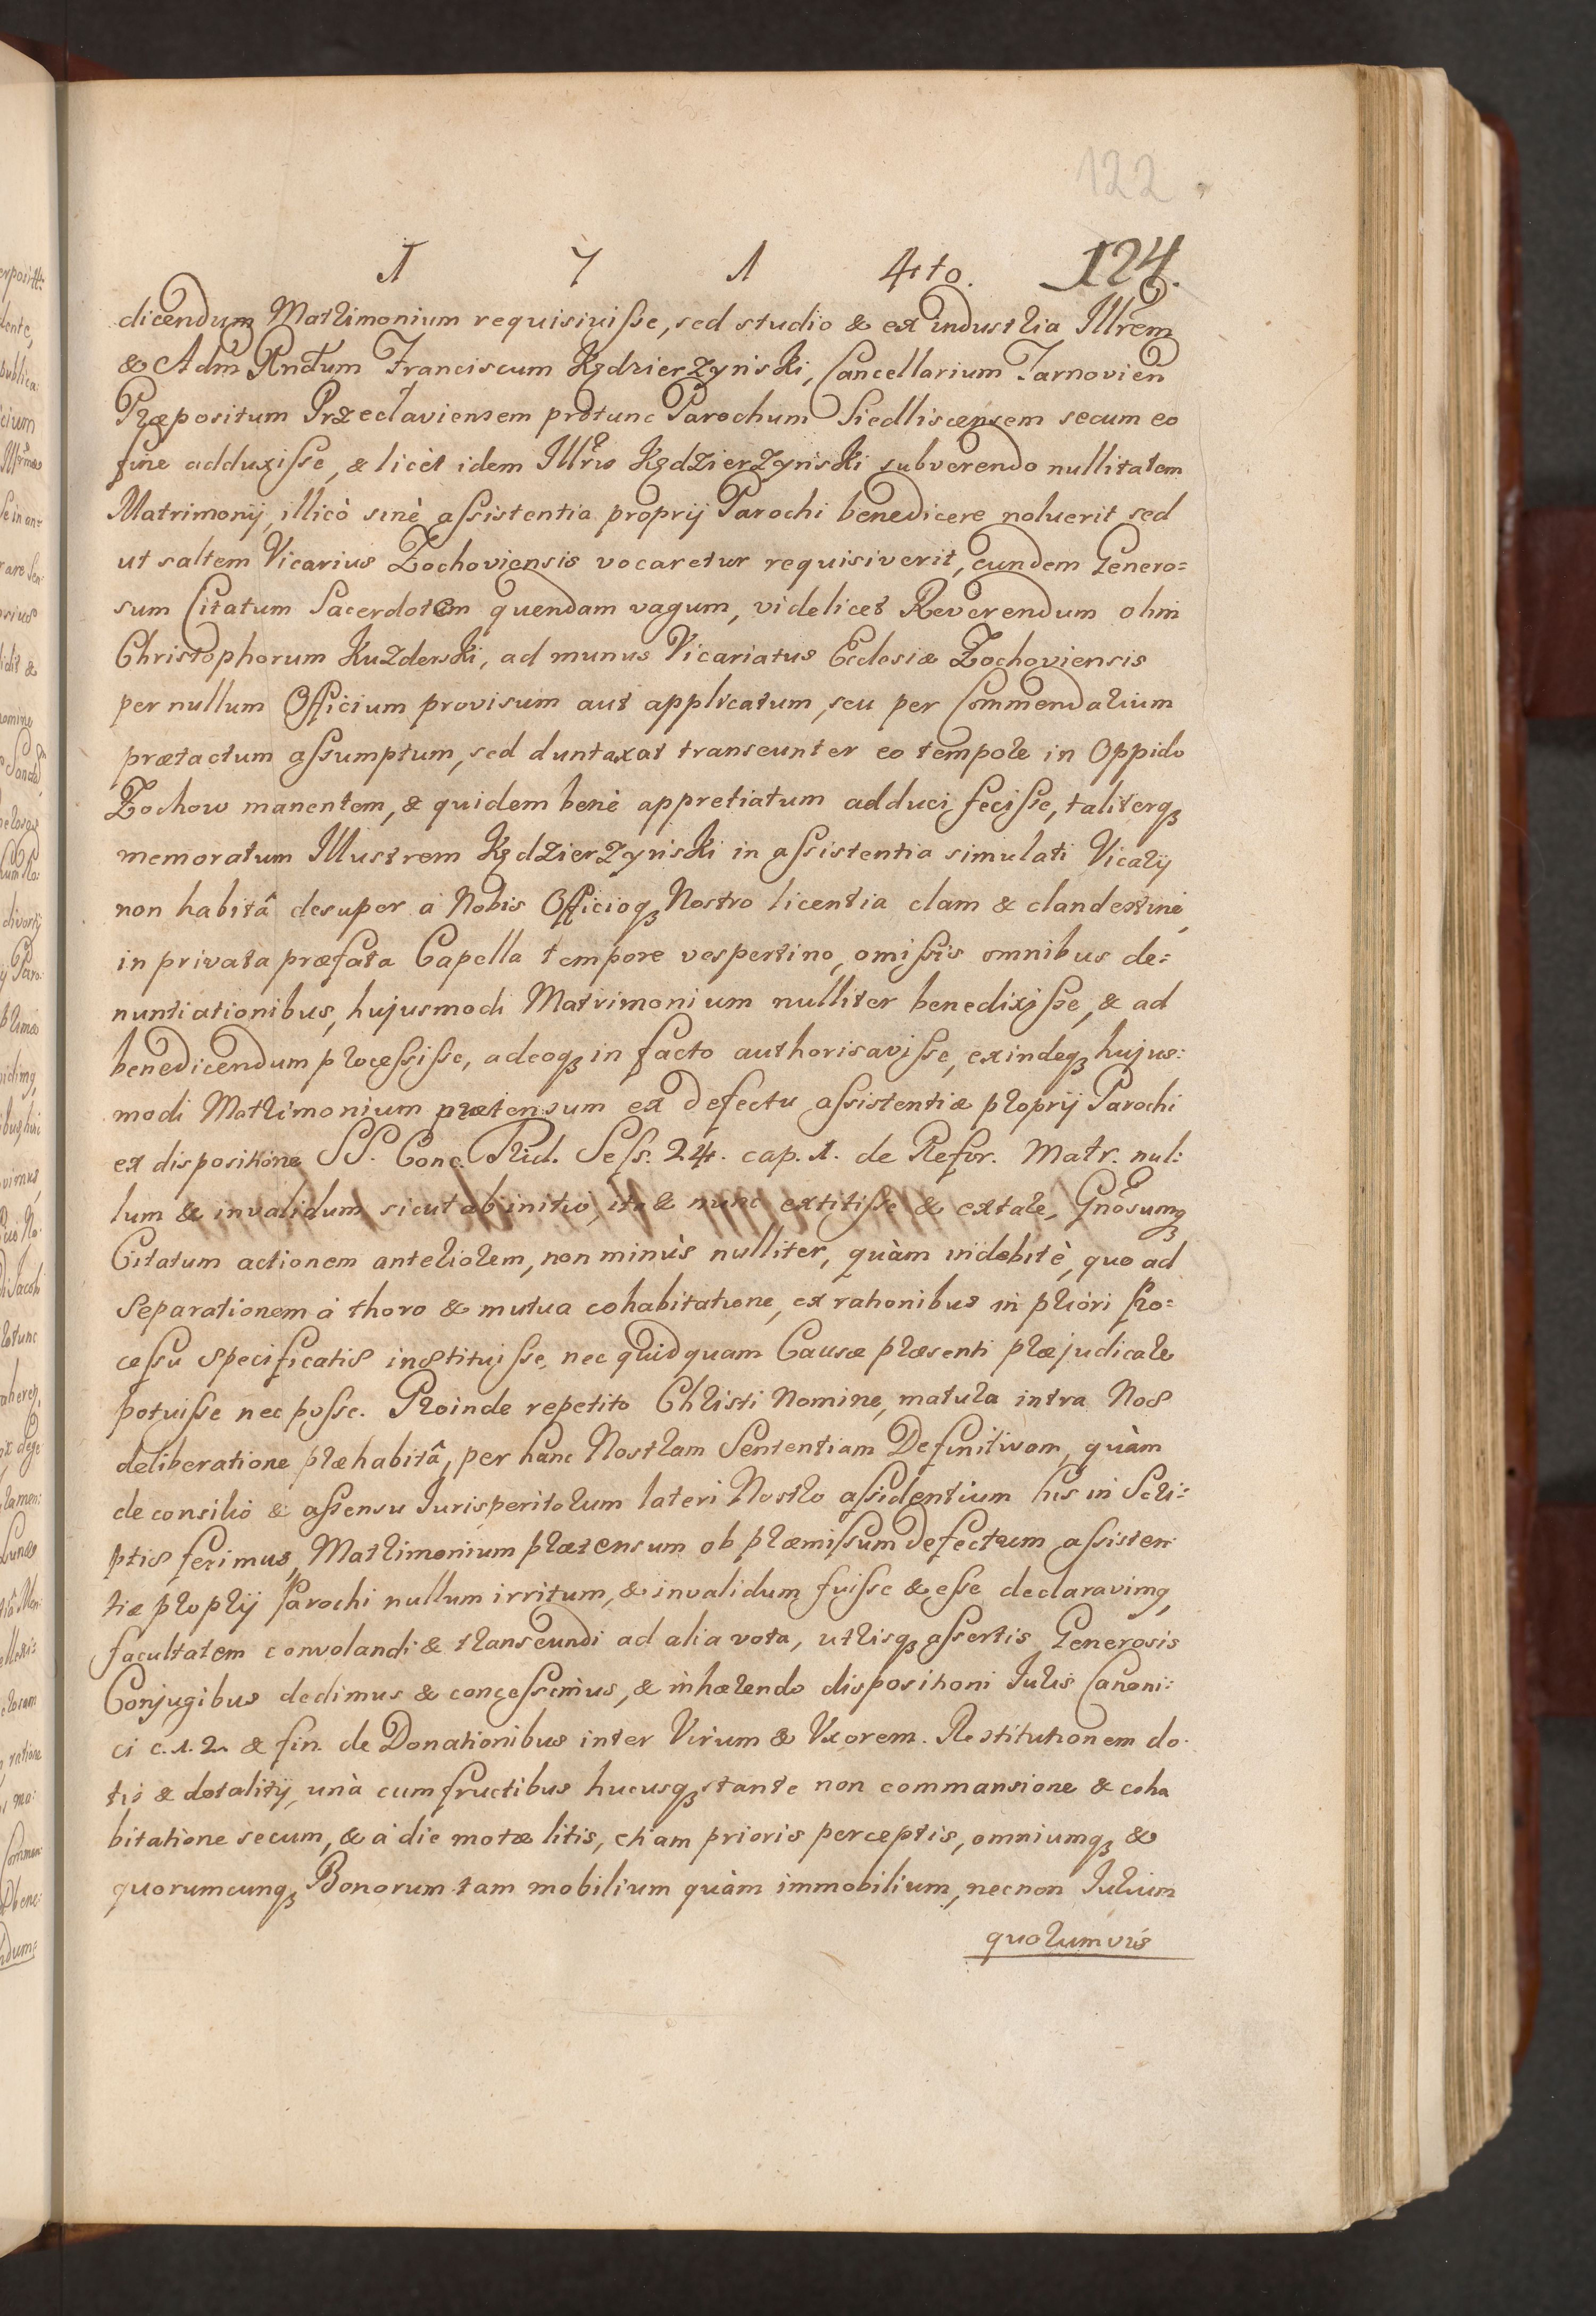 122
1 7 1 4to. 124.
dicendum Matrimonium requisiuisse, sed studio & ex industria Illrem
& Adm Rndum Franciscum Kędzierzynski, Cancellarium Tarnovien
Præpositum Przeclaviensem protunc Parochum Siedliscensem secum eo
fine adduxisse, & licèt idem Illris Kędzierzynski subverendo nullitatem
Matrimonij, illicò sinè assistentia proprij Parochi benedicere noluerit, sed
ut saltem Vicarius Zochoviensis vocaretur requisiverit, eundem Genero=
sum Citatum Sacerdotem quendam vagum, videlicet Reverendum olim
Christophorum Kuzderski, ad munus Vicariatus Ecclesiæ Zochoviensis
per nullum Officium provisum aut applicatum, seu per Commendarium
prætactum assumptum, sed duntaxat transeunter eo tempore in Oppido
Zochow manentem, & quidem benè appretiatum adduci fecisse, taliterq
memoratum Illustrem Kędzierzynski in assistentia simulati Vicarij
non habitâ desuper à Nobis Officioq Nostro licentia clam & clandestinè,
in privata præfata Capella tempore vespertino, omissis omnibus de=
nuntiationibus, hujusmodi Matrimonium nulliter benedixisse, & ad
benedicendum processisse, adeoq in facto authorisavisse, exindeq hujus:
modi Matrimonium prætensum ex defectu assistentiæ proprij Parochi
ex dispositione SS. Conc. Trid. Sess. 24. cap. 1. de Refor. Matr. nul:
lum & invalidum sicut ab initio, ita & nunc extitisse & extare, Gnosumq
Citatum actionem anteriorem, non minùs nulliter, quàm indebitè, quo ad
Separationem à thoro & mutua cohabitatione, ex rationibus in priori Pro=
cessu specificatis instituisse, nec quidquam Causæ præsenti præjudicare
potuisse nec posse. Proinde repetito Christi Nomine, matura intra Nos
deliberatione præhabitâ, per hanc Nostram Sententiam Definitivam, quàm
de consilio & assensu Jurisperitorum lateri Nostro assidentium his in Scri=
ptis ferimus, Matrimonium prætensum ob præmissum defectum assisten
tiæ proprij Parochi nullum irritum, & invalidum fuisse & esse declaravimq,
facultatem convolandi & transeundi ad alia vota, utrisq assertis Generosis
Conjugibus dedimus & concessimus, & inhærendo dispositioni Juris Canoni:
ci c. 1. 2. & fin. de Donationibus inter Virum & Uxorem. Restitutionem do
tis & dotalitij, unà cum fructibus hucusq stante non commansione & coha
bitatione secum, & à die motæ litis, etiam prioris perceptis, omniumq &
quorumcunq Bonorum tam mobilium quàm immobilium, necnon Jurium
quorumvis